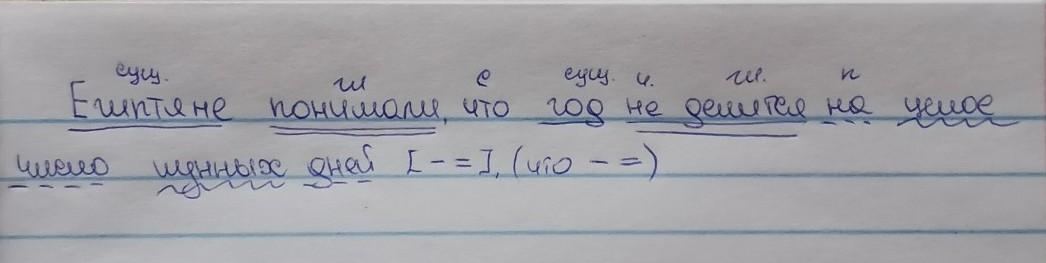 сущ. гл с сущ. ч. гл. п
Египтяне понимали, что год не делится на целое
число лунных дней [- =], (что - =)